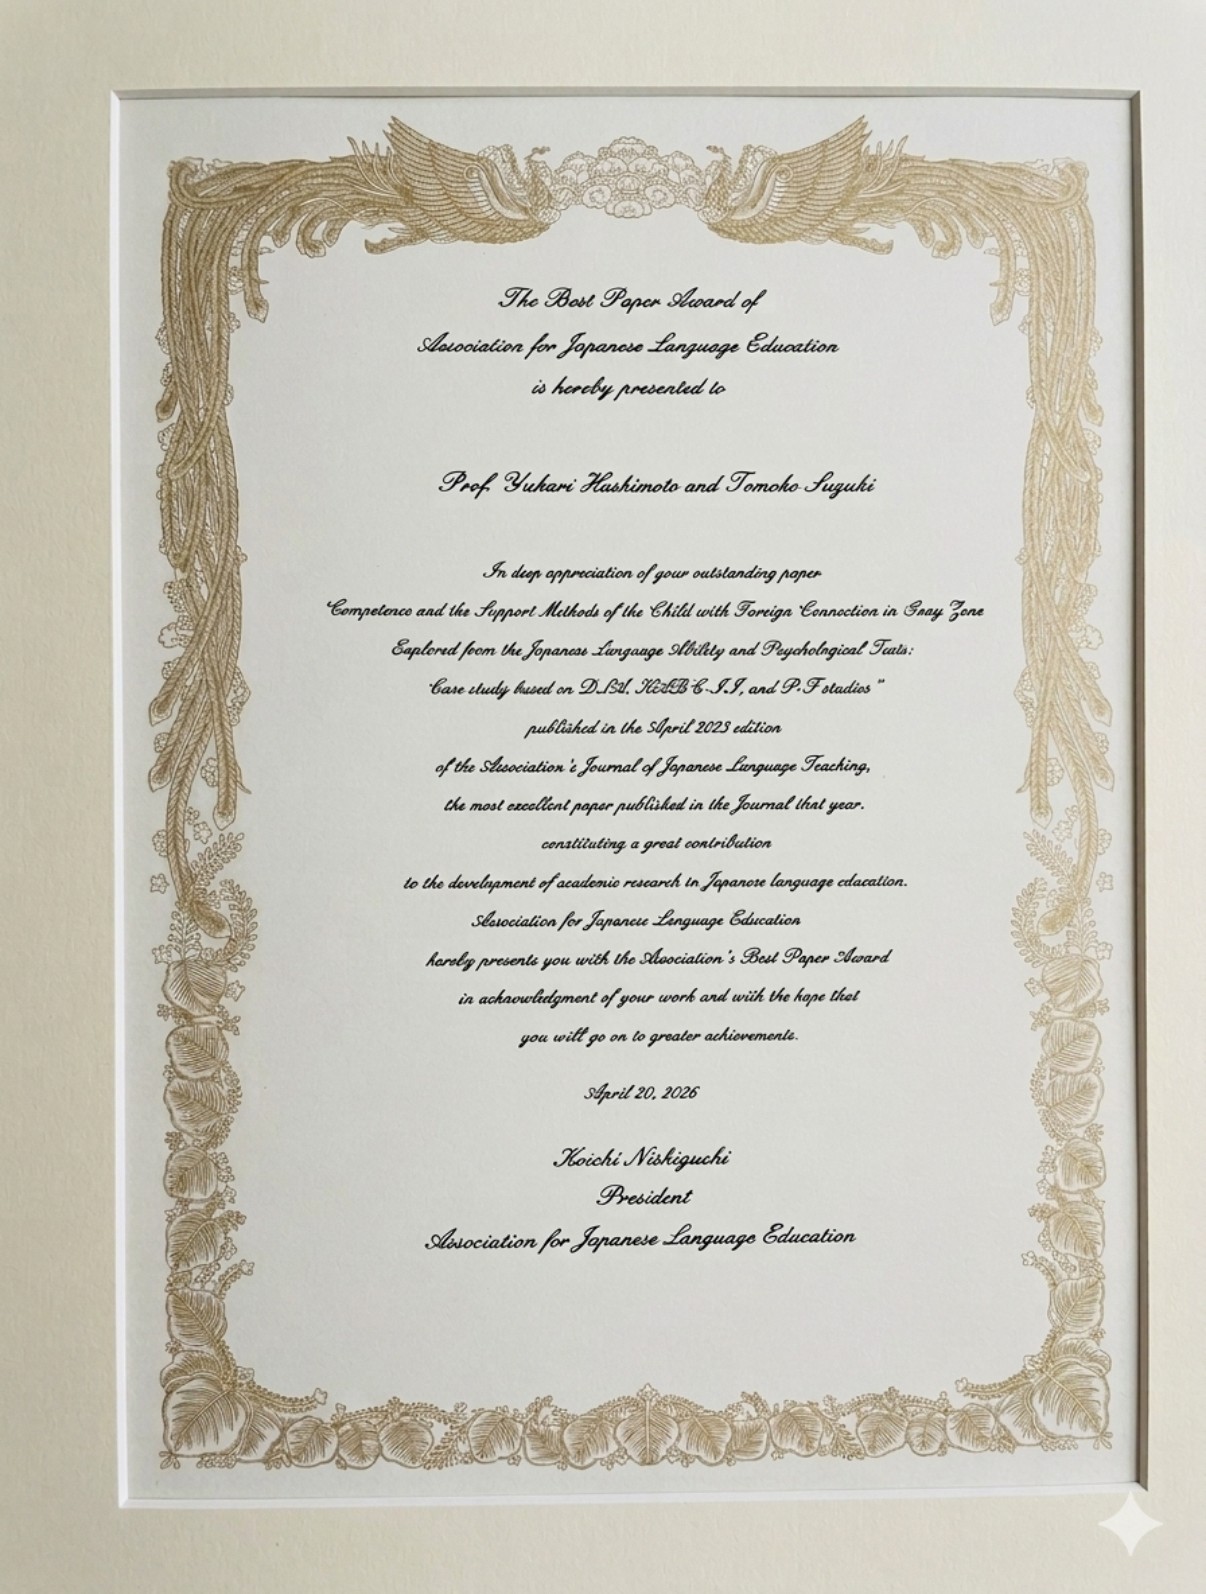 The Best Paper Award of
Association for Japanese Language Education
is hereby presented to
Prof. Yukari Hashimoto and Tomoko Suzuki
In deep appreciation of your outstanding paper
"Competence and the Support Methods of the Child with Foreign Connection in Gray Zone
Explored from the Japanese Langauge Ability and Psychological Tests:
Case study based on and P-F studies"
published in the April 2023 edition
of the Association's Journal of Japanese Language Teaching,
the most excellent paper published in the Journal that year.
constituting a great contribution
to the development of academic research in Japanese language education.
Association for Japanese Language Education
hereby presents you with the Association's Best Paper Award
in acknowledgment of your work and with the hope that
you will go on to greater achievements.
April 20, 2026
Koichi Nishiguchi
President
Association for Japanese Language Education